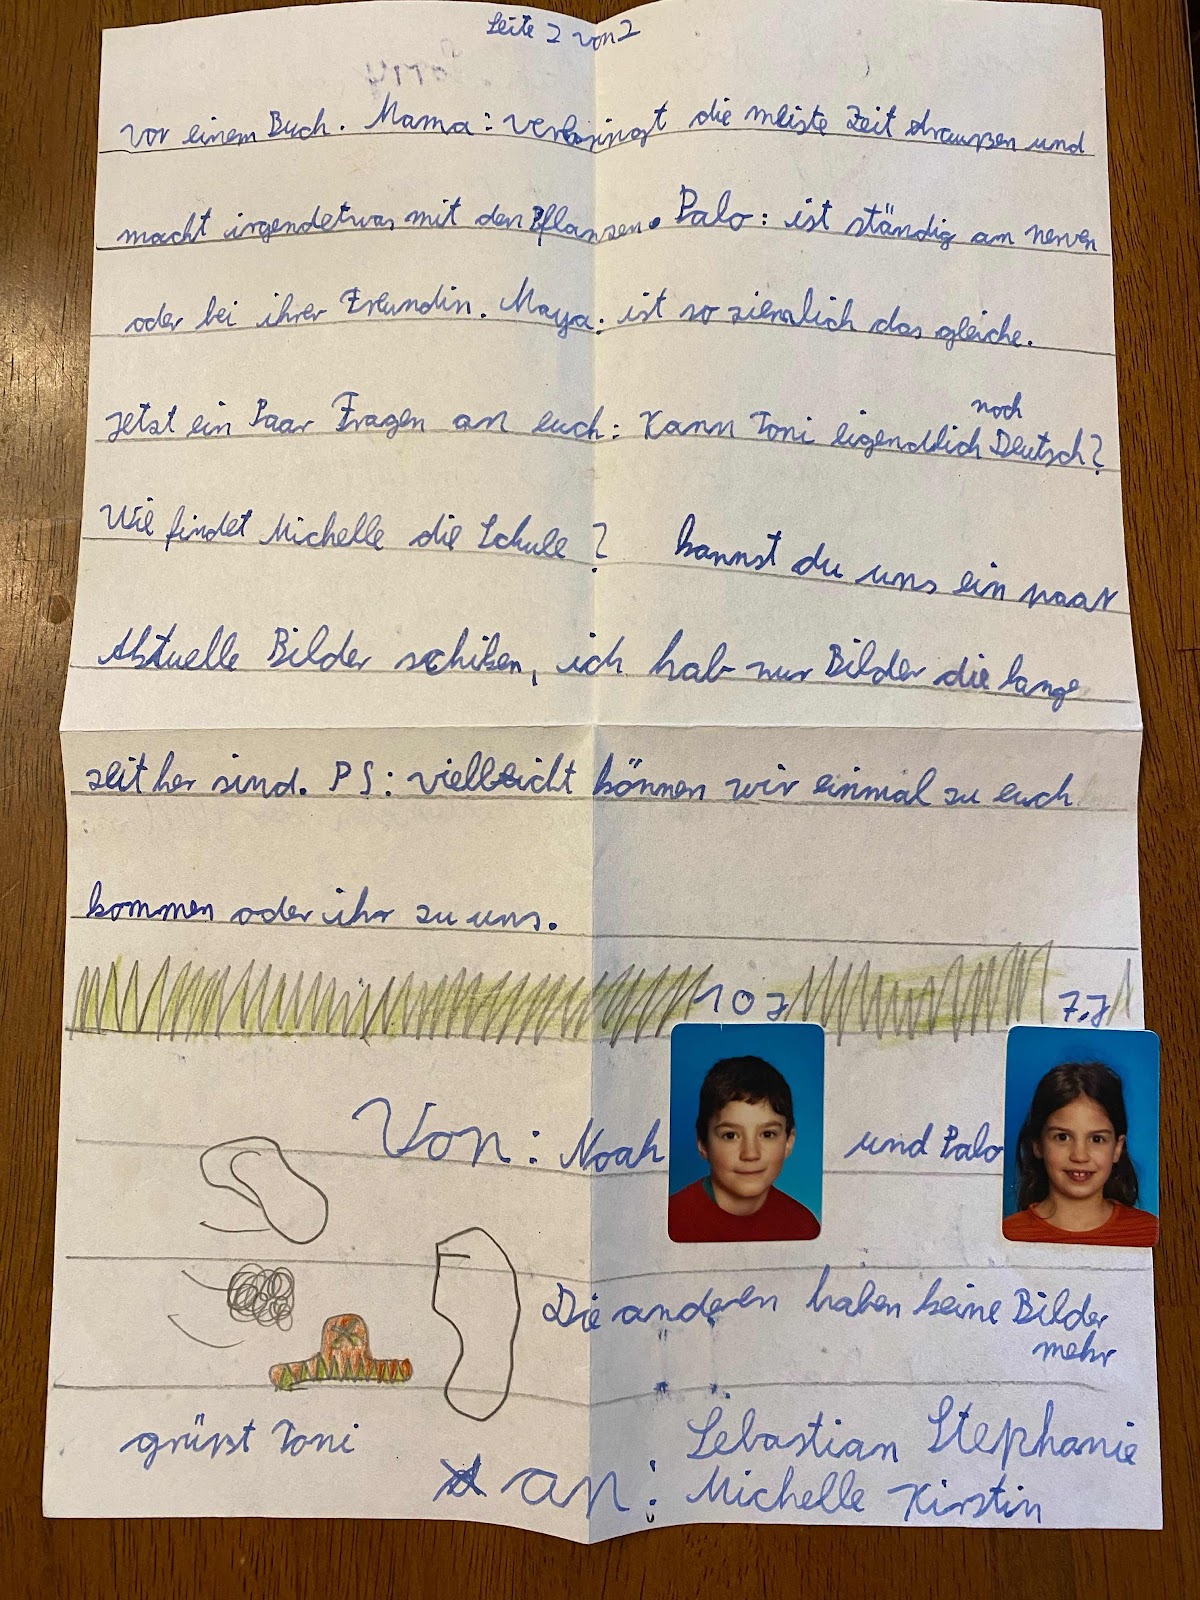 Seite 2 von 2
vor einem Buch. Mama: verbringt die meiste Zeit draußen und
macht irgendetwas mit den Pflanzen. Palo: ist ständig am nerven
oder bei ihrer Freundin. Maya: ist so ziemlich das gleiche.
Jetzt ein Paar Fragen an euch: Kann Toni eigendlich noch Deutsch?
Wie findet Michelle die Schule? kannst du uns ein paar
Aktuelle Bilder schiken, ich hab nur Bilder die lange
zeit her sind. PS: vielleicht können wir einmal zu euch
kommen oder ihr zu uns.
10 J 7,J
Von: Noah und Palo
Die anderen haben keine Bilder
mehr
grüßt Toni
an: Sebastian Stephanie
Michelle Kirstin